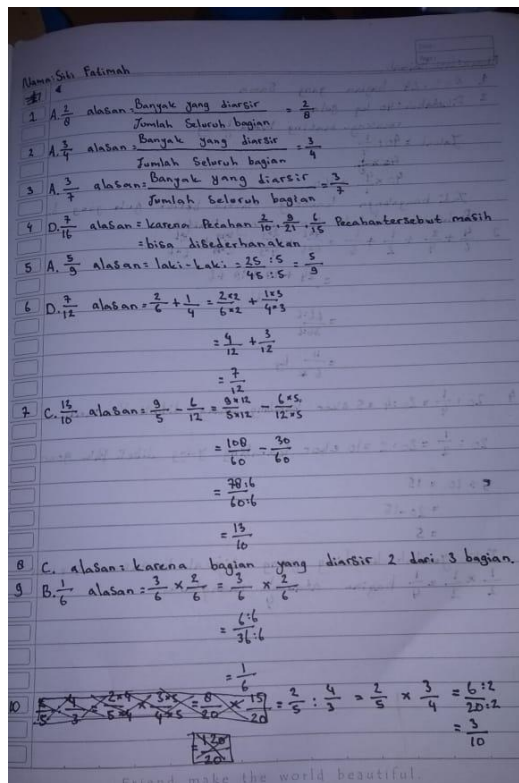 Nama: Siti Fatimah
1 A. 2/8 alasan = Banyak yang diarsir / Jumlah Seluruh bagian = 2/8
2 A. 3/4 alasan = Banyak yang diarsir / Jumlah Seluruh bagian = 3/4
3 A. 3/7 alasan = Banyak yang diarsir / Jumlah Seluruh bagian = 3/7
4 D. 7/16 alasan = karena Pecahan 2/10, 9/21, 6/15 Pecahan tersebut masih
= bisa disederhanakan
5 A. 5/9 alasan = laki-laki = 25 : 5 / 45 : 5 = 5/9
6 D. 7/12 alasan = 2/6 + 1/4 = 2×2 / 6×2 + 1×3 / 4×3
= 4/12 + 3/12
= 7/12
7 C. 13/10 alasan = 9/5 - 6/12 = 9×12 / 5×12 - 6×5 / 12×5
= 108/60 - 30/60
= 78:6 / 60:6
= 13/10
8 C. alasan = karena bagian yang diarsir 2 dari 3 bagian.
9 B. 1/6 alasan = 3/6 × 2/6 = 3/6 × 2/6
= 6:6 / 36:6
= 1/6
10 = 2/5 : 4/3 = 2/5 × 3/4 = 6:2 / 20:2
= 3/10
Friend make the world beautiful.